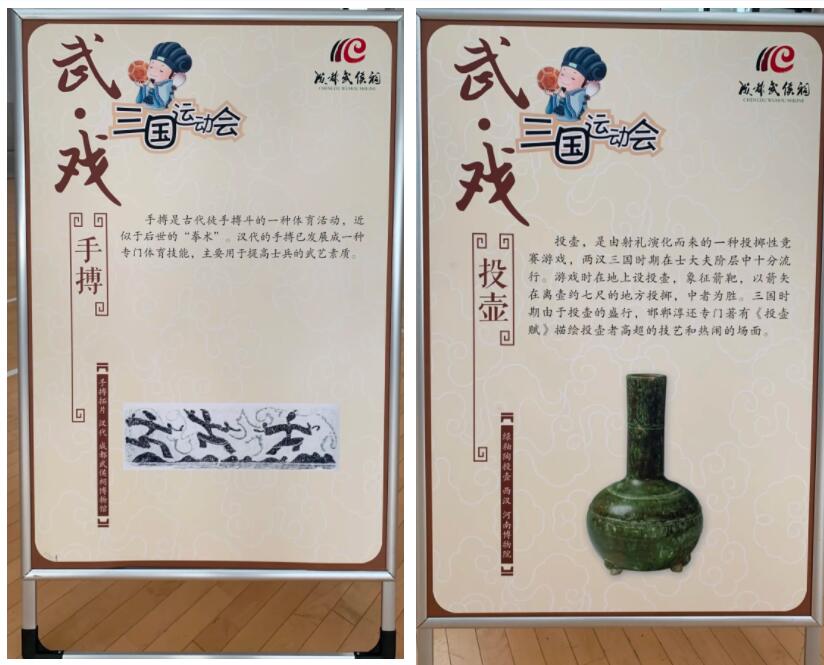 武·戏
三国运动会
成都武侯祠
CHENGDU WUHOU SHRINE
手搏
手搏是古代徒手搏斗的一种体育活动，近
似于后世的“拳术”。汉代的手搏已发展成一种
专门体育技能，主要用于提高士兵的武艺素质。
手搏拓片 汉代 成都武侯祠博物馆
武·戏
三国运动会
成都武侯祠
CHENGDU WUHOU SHRINE
投壶
投壶，是由射礼演化而来的一种投掷性竞
赛游戏，两汉三国时期在士大夫阶层中十分流
行。游戏时在地上设投壶，象征箭靶，以箭矢
在离壶约七尺的地方投掷，中者为胜。三国时
期由于投壶的盛行，邯郸淳还专门著有《投壶
赋》描绘投壶者高超的技艺和热闹的场面。
绿釉陶投壶 西汉 河南博物院